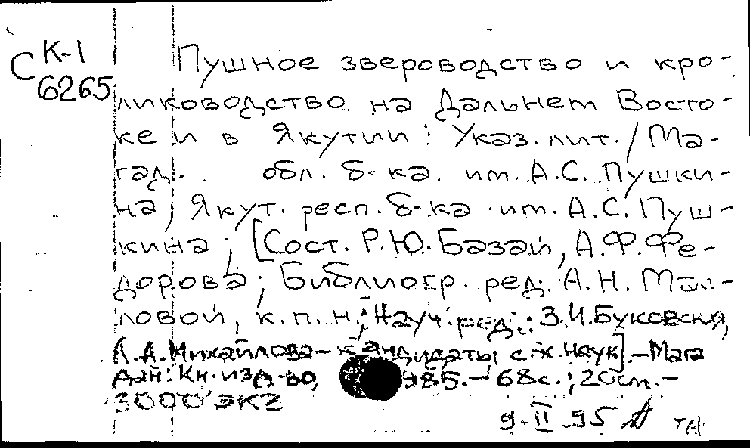 С К-1
6265
Пушное звероводство и кро-
лиководство на Дальнем Восто-
ке и в Якутии: Указ. лит. / Ма-
гад. обл. б-ка. им. А.С. Пушки-
на, Якут. респ. б-ка им. А.С. Пуш-
кина; [Сост. Р.Ю. Базай, А.Ф. Фе-
дорова; Библиогр. ред. А.Н.
ловой, к.п.н.; Науч. ред.: З.И. Буковская,
Л.А. Михайлова - кандидаты с.-х. наук]. - Мага
дан: Кн. изд-во, 985. - 68с.; 20см. -
3000 экз
9.II.95